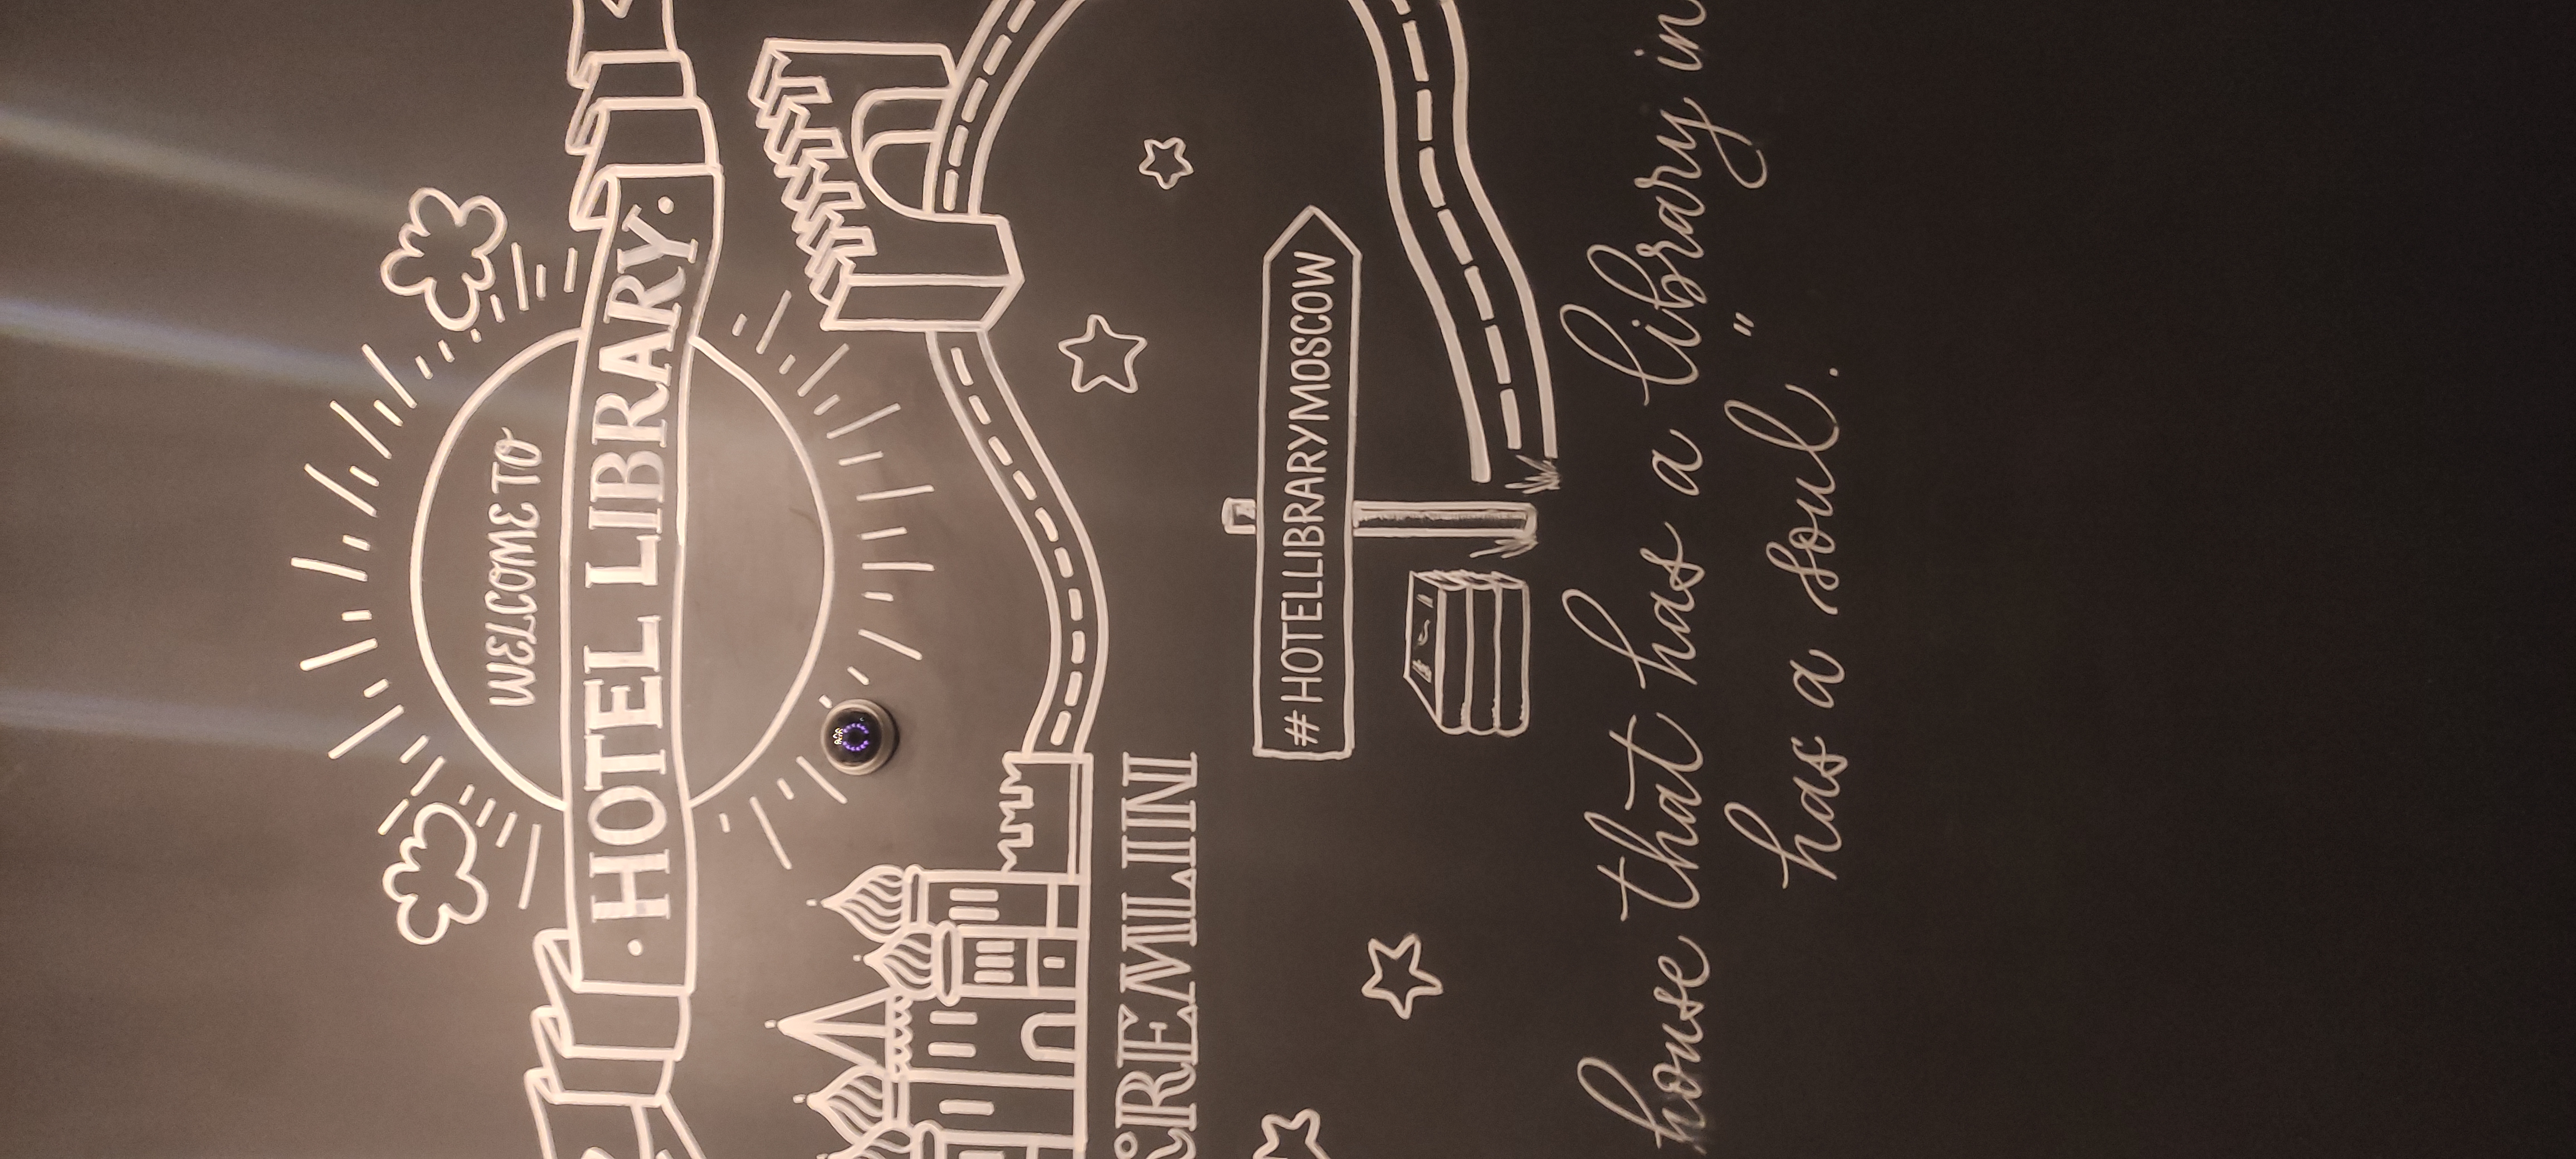 WELCOME TO
· HOTEL LIBRARY ·
KREMLIN
#HOTELLIBRARYMOSCOW
house that has a library in
has a soul."